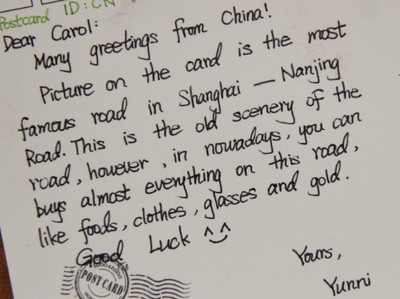 Postcard ID: CN
Dear Carol:
Many greetings from China!
Picture on the card is the most
famous road in Shanghai — Nanjing
Road. This is the old scenery of the
road, however, in nowadays, you can
buys almost everything on this road,
like foods, clothes, glasses and gold.
Good Luck ^_^
Yours,
Yunni
POST CARD